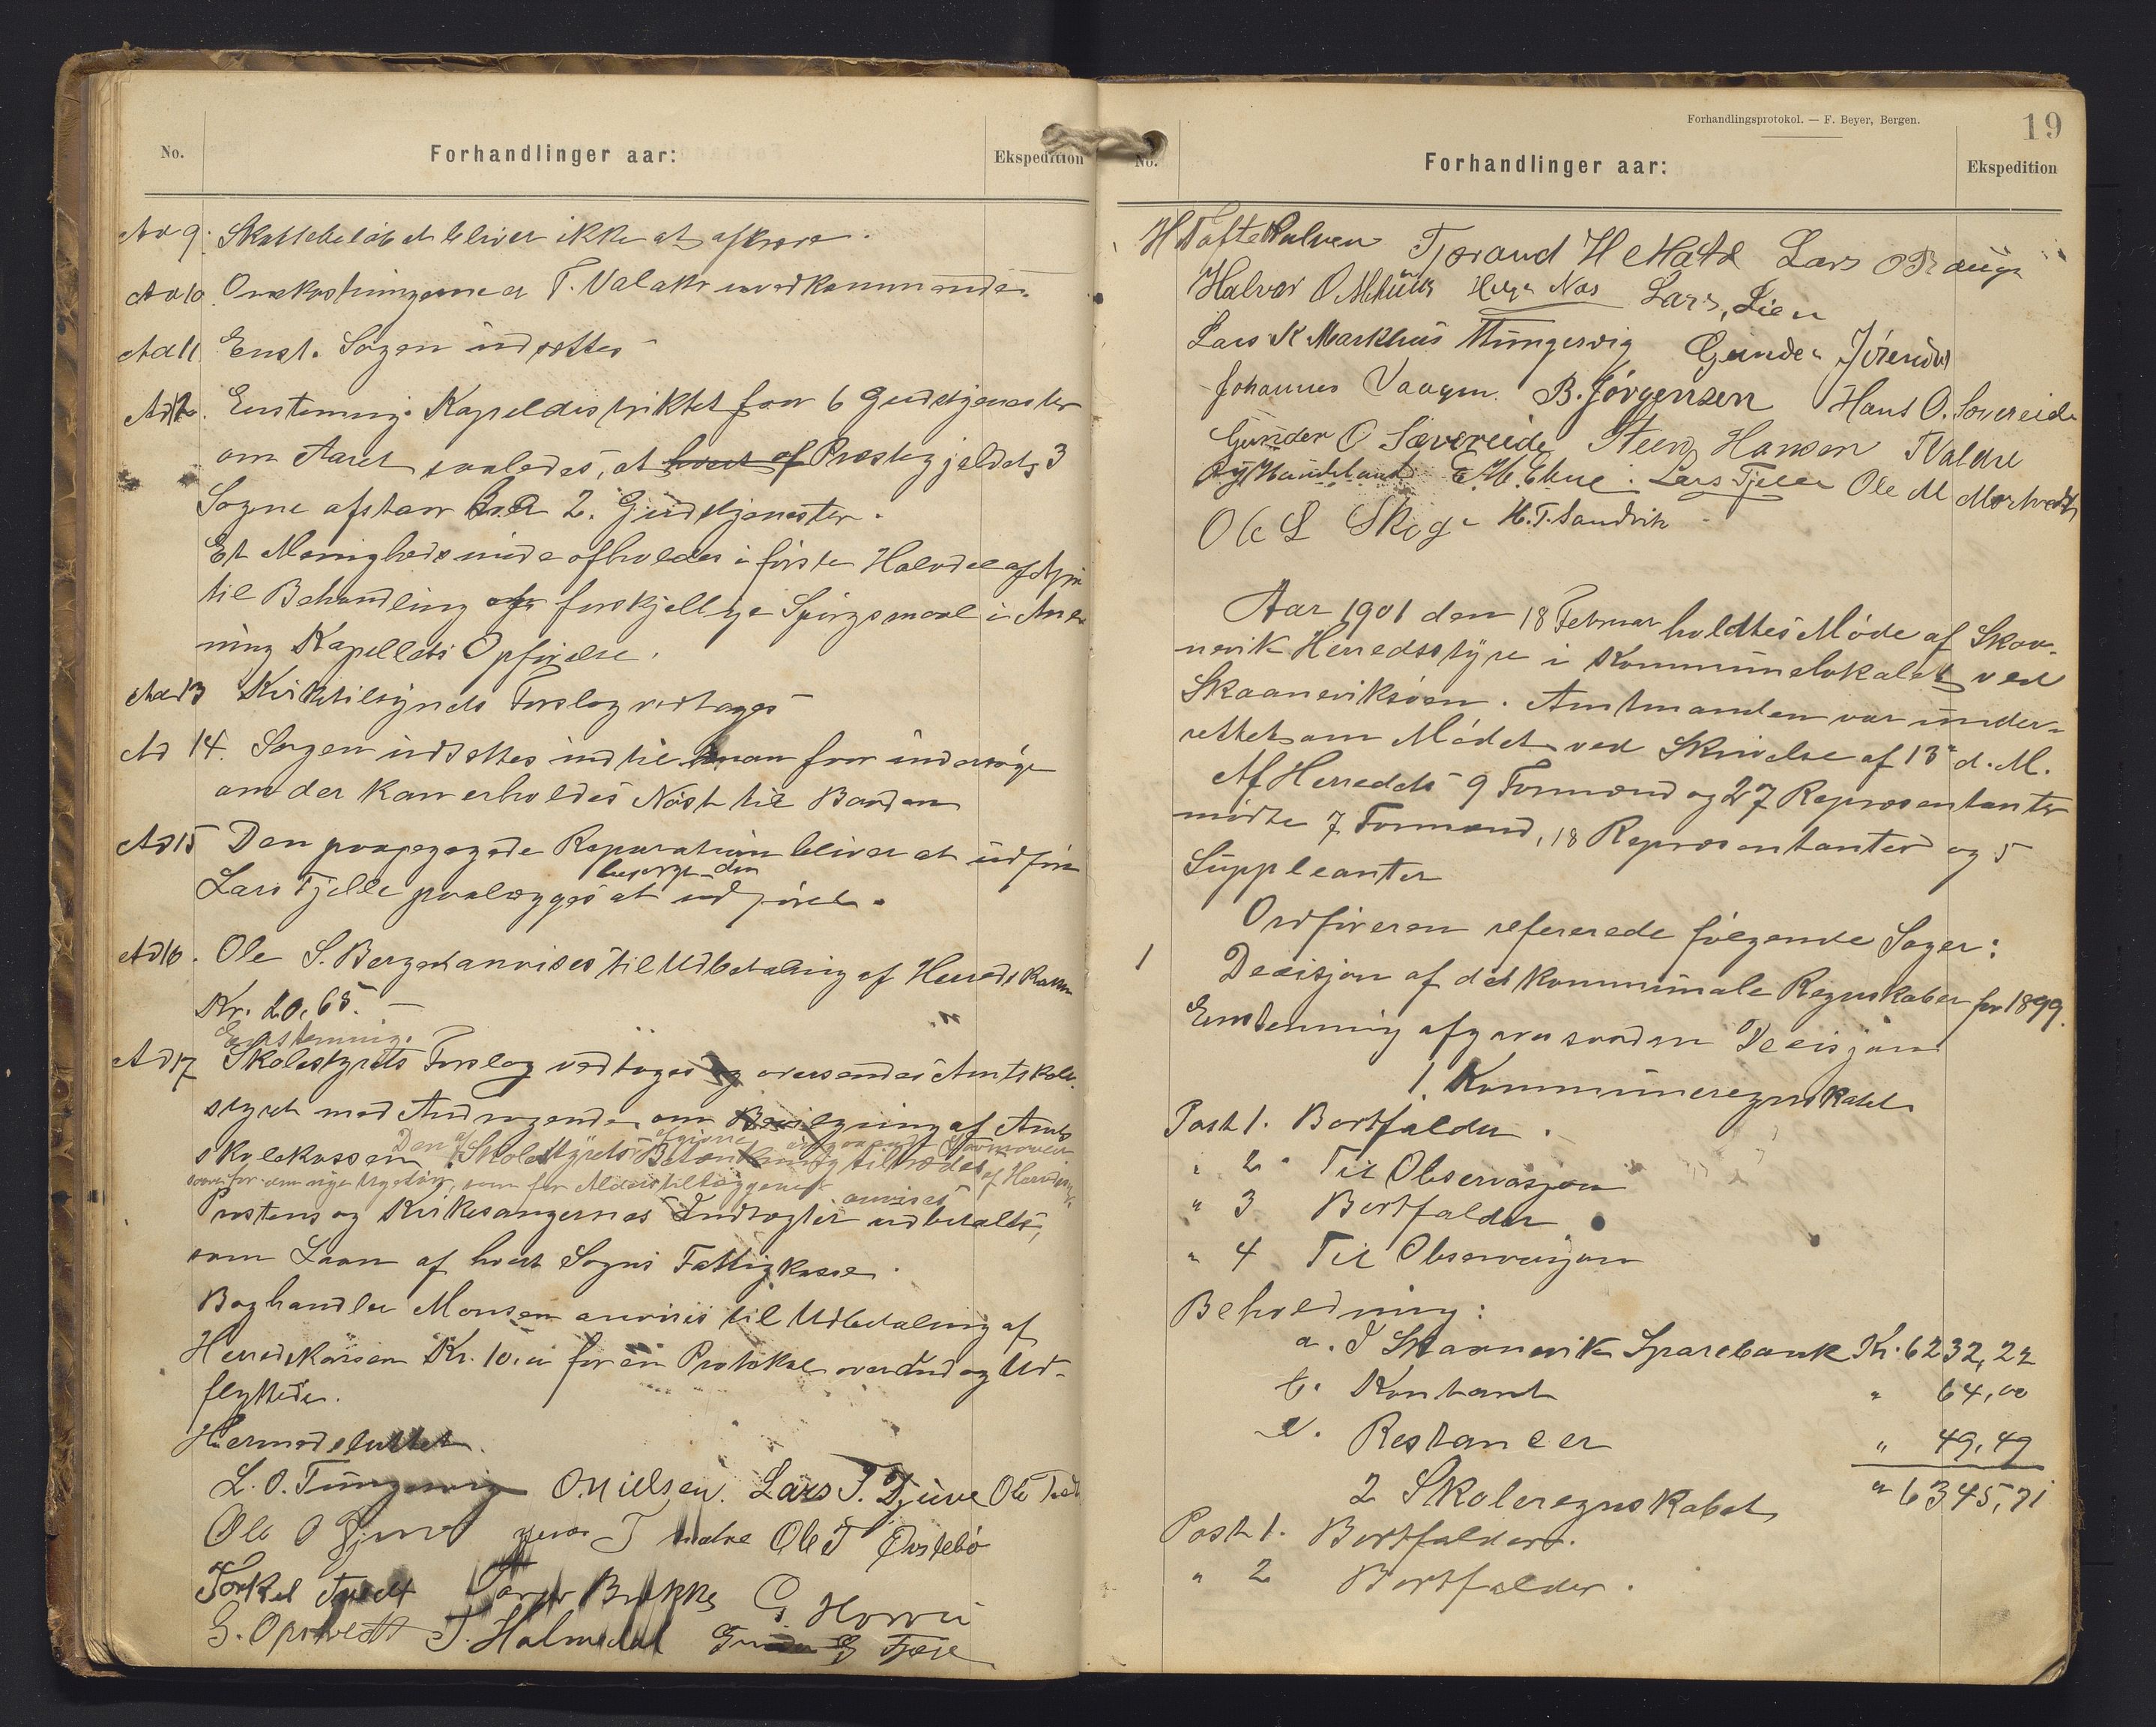 No.
Forhandlinger aar:
Ekspedition
Ad 9. Skattebeløbet bliver ikke at afkræve.
Ad 10. Omkostningerne er T. Valakr uvedkommende.
Ad 11. Enst. Sagen udsættes
Ad 12. Enstemmig. Kapeldistriktet faar 6 Gudstjenester
om Aaret saaledes, at hvert af Præstegjeldets 3
Sogne afstaar 2. Gudstjenester.
Et Menighedsmøde afholdes i første Halvdel af Apr
til Behandling af forskjellige Spørgsmaal i Anl
ning Kapellets Opførelse.
Ad 13 Kirketilsynets Forslag vedtages
Ad 14. Sagen udsættes indtil man faar undersøge
om der kan erholdes Nøst til Baaden
Ad 15 Den paapegede Reparation bliver at udføre
besørge den
Lars Fjelle paalægges at udføret.
Ad 16. Ole S. Berge anvises til Udbetaling af Heredskassen
Kr. 20,65. —
Enstemmig.
Ad 17 Skolestyrets Forslag vedtages og oversendes Amtskole-
styret med Andragende om Bevilgning af Amts
skolekassen. Den af Skolestyrets afgivne Betænkning tiltrædes af Herredsst.
saavel for den nye Lygtin, som for Alderstillæggene
anvises
Prestens og Kirkesangernes Indtægter udbetalt,
som Laan af hvert Sogns Fattigkasse.
Boghandler Monsen anvises til Udbetaling af
Heredskassen Kr. 10,00 for en Protokol over Ind og Ud-
flyttede.
Hermed sluttet.
L. O. Tungesvig O. Nielsen. Lars T. Djuve Ole Tved
Ole O Ole T Østebø
Torkel Tvedt Brekke G.
G. Opstvedt T. Holmedal Gunder G Fjære
Forhandlingsprotokol. — F. Beyer, Bergen.
19
No.
Forhandlinger aar:
Ekspedition
H Toftekalven Tjerand H Lars O
Halvor O Helge Næs Lars, Lien
Lars K Markhus Mungesvig Gunder
Johannes Vaagen. B. Jørgensen Hans O. Sævereide
Gunder O Sævereide Steen Hansen T Valdre
E. M. Ekne. Lars Fjelle Ole M Mortvedt
Ole L Skoge H. T. Sandvik
Aar 1901 den 18 Februar holdtes Møde af Skaa-
nevik Herredsstyre i Kommunelokalet ved
Skaaneviksøen. Amtmanden var under-
rettet om Mødet ved Skrivelse af 13de d. M.
Af Herredets 9 Formænd og 27 Repræsentanter
mødte 7 Formænd, 18 Repræsentanter og 5
Suppleanter
Ordføreren refererede følgende Sager:
1 Decisjon af det kommunale Regnskaber for 1899.
Enstemmig afgaves saadan Decisjon
1. Kommuneregnskabet
Post 1. Bortfalder.
" 2 " Til Observasjon
" 3 Bortfalder
" 4 Til Observasjon
Beholdning:
a. I Skaanevik Sparebank Kr. 6232,22
b. Kontant " 64,00
c. Restancer " 49,49
" 6345,71
2 Skoleregnskabet
Post 1. Bortfalder.
" 2 Bortfalder.